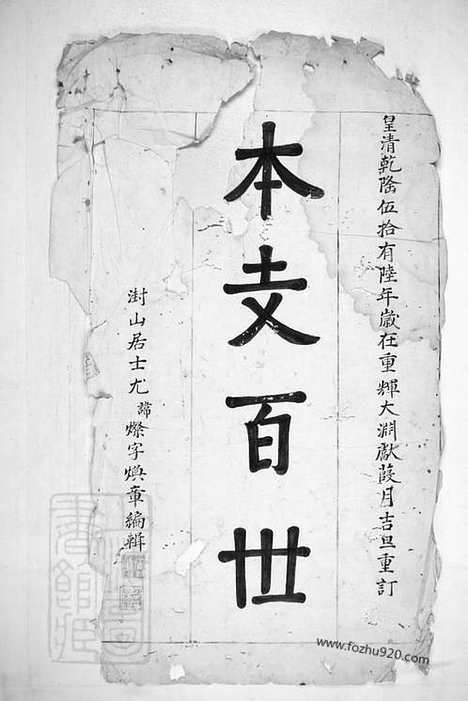 皇清乾隆伍拾有陸年歲在重輝大淵獻葭月吉旦重訂
本支百世
澍山居士尤諱燦字煥章編輯
www.fozhu920.com